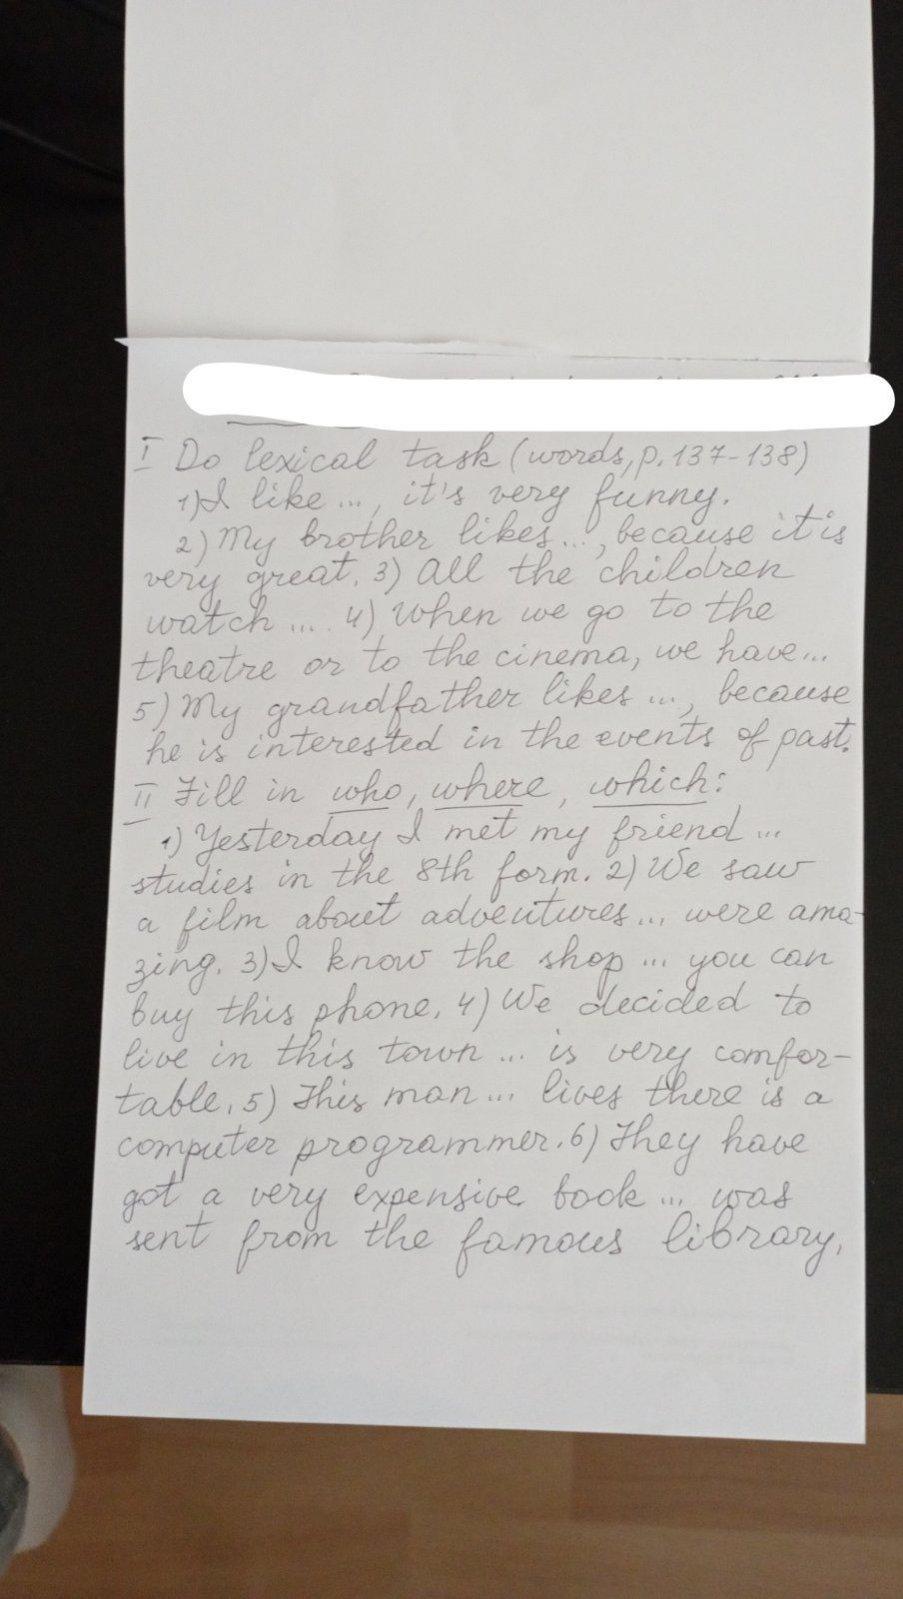 I Do lexical task (words, p. 137-138)
1) I like ..., it's very funny.
2) My brother likes..., because it is
very great. 3) All the children
watch .... 4) When we go to the
theatre or to the cinema, we have...
5) My grandfather likes ..., because
he is interested in the events of past.
II Fill in who, where, which:
1) Yesterday I met my friend ...
studies in the 8th form. 2) We saw
a film about adventures... were ama-
zing. 3) I know the shop ... you can
buy this phone. 4) We decided to
live in this town ... is very comfor-
table. 5) This man ... lives there is a
computer programmer. 6) They have
got a very expensive book ... was
sent from the famous library.